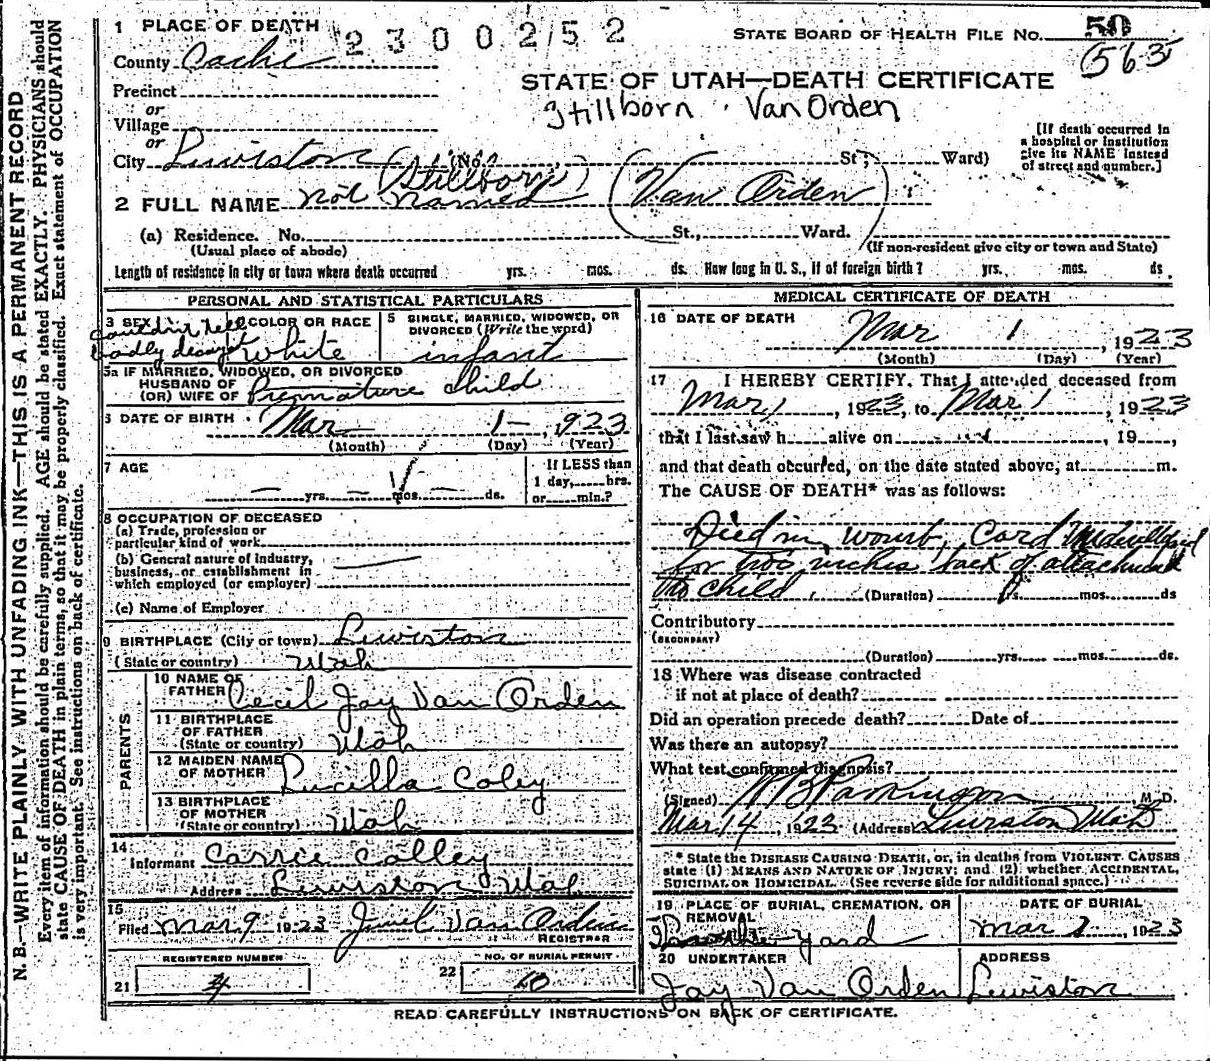 1 PLACE OF DEATH
2300252
STATE BOARD OF HEALTH FILE No. 50
563
County Cache
STATE OF UTAH—DEATH CERTIFICATE
Precinct
Stillborn Van Orden
or
Village
or
[If death occurred in
a hospital or institution
give its NAME instead
of street and number.]
City Lewiston (No. St; Ward)
(Stillborn)
2 FULL NAME not named (Van Orden)
(a) Residence. No. St., Ward.
(Usual place of abode)
(If non-resident give city or town and State)
Length of residence in city or town where death occurred yrs. mos. ds. How long in U. S., if of foreign birth? yrs. mos. ds.
PERSONAL AND STATISTICAL PARTICULARS
3 SEX
couldn't tell
badly decayed
4 COLOR OR RACE
white
5 SINGLE, MARRIED, WIDOWED, OR
DIVORCED (Write the word)
infant
5a IF MARRIED, WIDOWED, OR DIVORCED
HUSBAND OF
(OR) WIFE OF Premature child
6 DATE OF BIRTH Mar 1 - , 1923
(Month) (Day) (Year)
7 AGE
— yrs. — mos. — ds.
If LESS than
1 day, hrs.
or min.?
8 OCCUPATION OF DECEASED
(a) Trade, profession or
particular kind of work
(b) General nature of industry,
business, or establishment in
which employed (or employer)
(c) Name of Employer
9 BIRTHPLACE (City or town) Lewiston
(State or country) Utah
PARENTS
10 NAME OF
FATHER Cecil Jay Van Orden
11 BIRTHPLACE
OF FATHER
(State or country) Utah
12 MAIDEN NAME
OF MOTHER Lucilla Coley
13 BIRTHPLACE
OF MOTHER
(State or country) Utah
14
Informant Carrie Colley
Address Lewiston Utah
15
Filed Mar 9 1923 Van Orden
REGISTRAR
REGISTERED NUMBER
21 4
NO. OF BURIAL PERMIT
22 10
MEDICAL CERTIFICATE OF DEATH
16 DATE OF DEATH
Mar 1 , 1923
(Month) (Day) (Year)
17 I HEREBY CERTIFY, That I attended deceased from
Mar 1 , 1923, to Mar 1 , 1923
that I last saw h alive on , 19 ,
and that death occurred, on the date stated above, at m.
The CAUSE OF DEATH* was as follows:
Died in womb, Cord
for two inches back of attachment
to child. (Duration) yrs. mos. ds
Contributory
(SECONDARY)
(Duration) yrs. mos. ds.
18 Where was disease contracted
if not at place of death?
Did an operation precede death? Date of
Was there an autopsy?
What test confirmed diagnosis?
(Signed) Parkinson, M. D.
Mar 14 , 1923 (Address) Lewiston Utah
* State the DISEASE CAUSING DEATH, or, in deaths from VIOLENT CAUSES
state (1) MEANS AND NATURE OF INJURY; and (2) whether ACCIDENTAL,
SUICIDAL OR HOMICIDAL. (See reverse side for additional space.)
19 PLACE OF BURIAL, CREMATION, OR
REMOVAL
yard
DATE OF BURIAL
Mar 1 , 1923
20 UNDERTAKER
Jay Van Orden
ADDRESS
Lewiston
READ CAREFULLY INSTRUCTIONS ON BACK OF CERTIFICATE.
N. B.—WRITE PLAINLY WITH UNFADING INK—THIS IS A PERMANENT RECORD
Every item of information should be carefully supplied. AGE should be stated EXACTLY. PHYSICIANS should
state CAUSE OF DEATH in plain terms, so that it may be properly classified. Exact statement of OCCUPATION
is very important. See instructions on back of certificate.